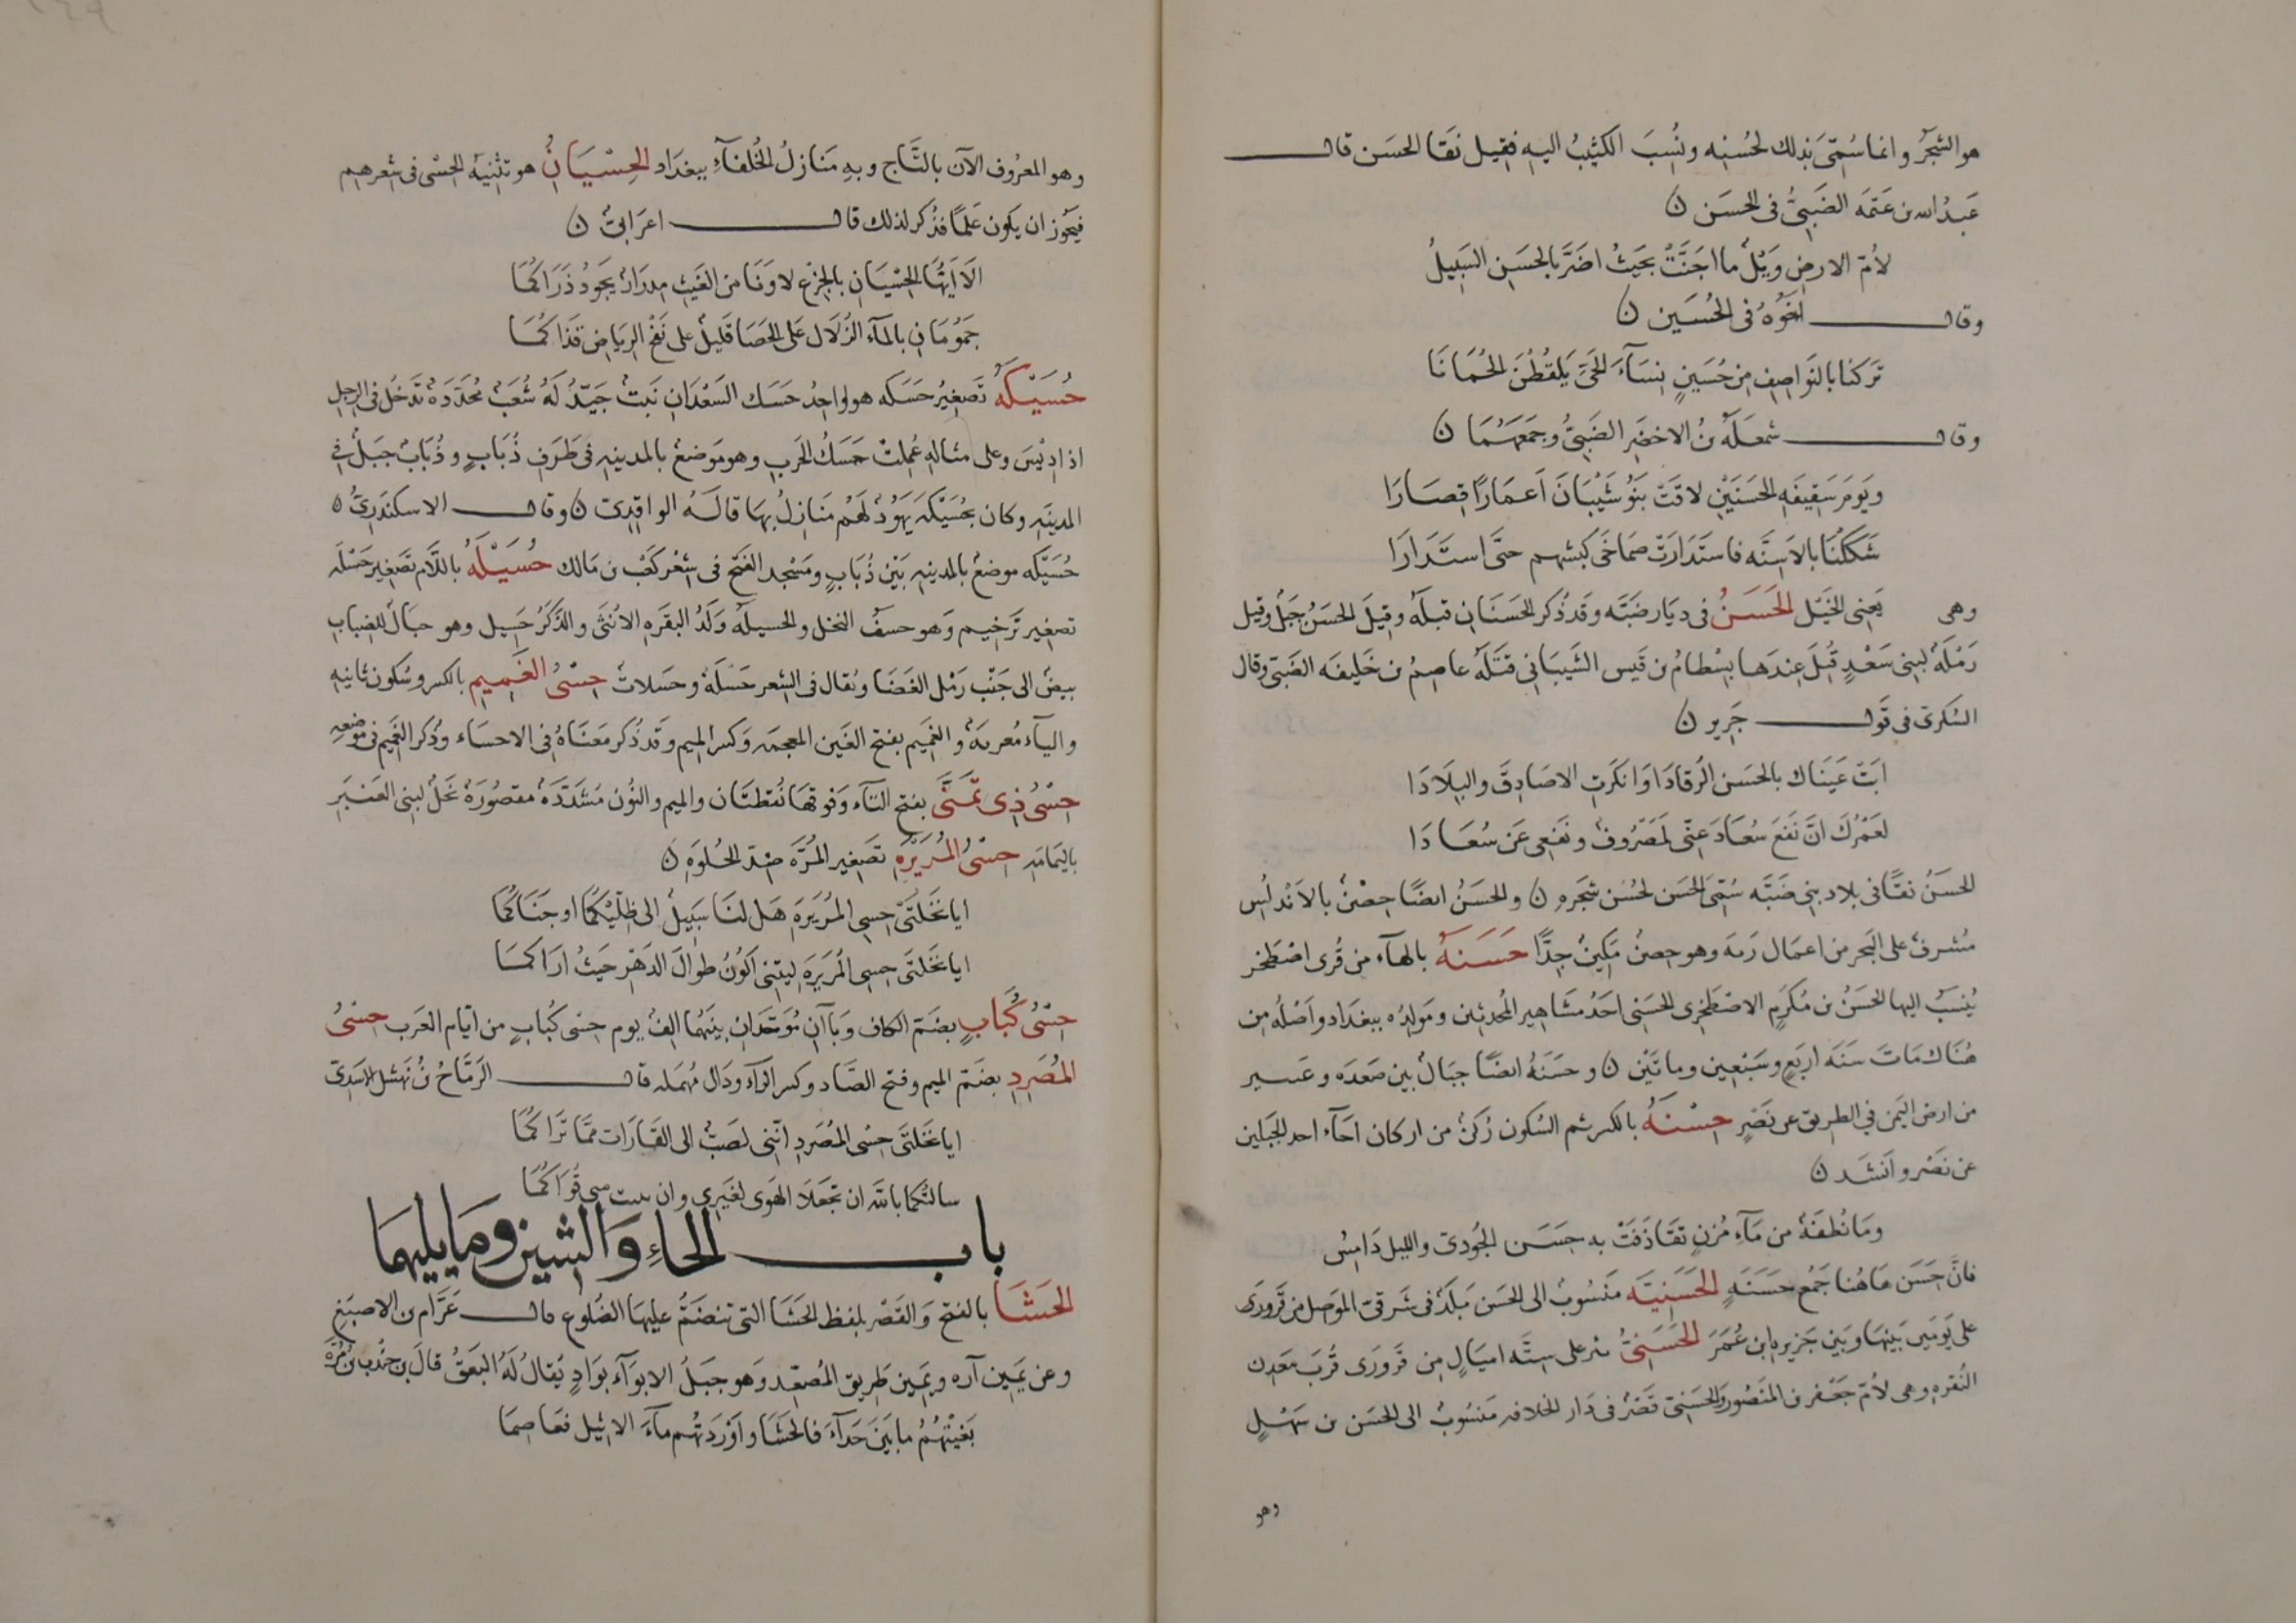 هو الشجر وانما سُمّىَ بذلك لحُسْنِه ونُسِبَ الكثيبُ اليه فقيل نَقَا الحسَن قال
عَبدُ الله بن عَنَمَه الضَبِىُّ فى الحسَن ن
لأمّ الارضِ وَيْلٌ ما اجَنَّتْ بحَيثُ اضَرَّ بالحسَنِ السَبيلُ
وقال اخُوهُ فى الحُسَين ن
تَركنا بالنَواصِفِ مِن حُسَينٍ نِسَآءَ الحَىِّ يَلقُطْنَ الجُمَانَا
وقال شمعَلَه بنُ الاخضَر الضَبِىُّ وجمَعَهُمَا ن
ويَومَ سَقِيفَه الحسَنَيْنِ لاقَتْ بَنُو شَيْبَانَ اَعمَارًا قِصَارَا
شَكَكْنَا بالاَسِنَّه فاستَدَارَتْ صمَاخَى كبشهم حتّى استَدَارَا
وهى يَعنى الخَيْل الحَسَنُ فى ديَار ضَبَّه وقَد ذُكر الحَسَنَان قبلَه وقِيلَ الحسَنُ جبَلٌ وقيل
رَمْلَةٌ لبَنى سَعْدٍ قُتِلَ عِندَها بِسْطامُ بن قَيس الشَيبَانى قَتَلَهُ عاصِمُ بن خَليفَه الضَبّى وقال
السُكرىّ فى قَول جَرير ن
ابَتْ عَيْنَاك بالحسَن الرُقادَا وَانكَرتَ الاصَادِقَ والبِلَادَا
لعَمْرُكَ انَّ نَفعَ سُعَادَ عنّى لمَصْرُوفٌ ونَفعِى عَن سُعَادَا
الحسَنُ نقًا فى بلاد بنى ضَبَّه سُمّىَ الحسَن لحُسْن شجَرهِ ن والحسَنُ ايضًا حِصْنٌ بالاَندلُس
مُشرفٌ على البَحر من اعمَال رَيَه وهو حِصنٌ مَكِينٌ جدًّا حَسَنَهُ بالهآء من قُرى اصْطَخر
يُنسَبُ اليها الحسَنُ بن مُكرَم الاصْطَخرى الحسَنى احَدُ مشَاهِير المُحدثِين ومَولِدُه ببغدَاد واَصْلُه مِن
هُنَاك مَاتَ سَنَه اربَعٍ وسَبْعِين وماتَيْن ن وحَسَنَهُ ايضًا جبَالٌ بين صَعدَه وعَسير
من ارض اليمَن فى الطريق عن نَصْرٍ حِسْنَهُ بالكسر ثم السُكون رُكنٌ من اركان اجَآء احد الجبَلين
عن نَصْر واَنشَد ن
ومَا نُطفَةٌ من مَآء مُزنٍ تقَاذَفَتْ به حِسَن الجُودىّ والليل دَامِسُ
فانَّ حِسَن هَاهُنا جَمْع حسَنَهٍ الحَسَنيّه مَنسُوبٌ الى الحَسَن بَلَدٌ فى شَرقىّ الموَصل من قَرَورَى
على يَومَين بَينهَا وبَين جَزيره ابن عُمَرَ الحَسَنىُّ بئر على سِتَّه اميَالٍ من قَرَورَى قُربَ مَعدن
النُقره وهى لأمّ جَعْفر بن المَنصُور والحَسَنىّ قَصْرٌ فى دَار الخلافه مَنسُوبٌ الى الحسَن بن سَهْلٍ
وهو
وهو المعرُوف الآن بالتَّاج وبهِ مَنازلُ الخُلفآءِ ببغدَاد الحِسْيَانِ هو تثْنيه الحِسْى فى شعرهم
فيَجُوز ان يَكون عَلمًا فذُكر لذلك قال اعرَابىّ ن
الَا اَيّهَا الحِسْيَانِ بالجِزْع لا وَنَا من الغَيثِ مِدرَارٌ يَجودُ ذَرَاكُمَا
جَمُومَانِ بالمآء الزُلَال على الحَصَا قَليلٌ على نَفْحِ الرِيَاض قَذَاكُمَا
حُسَيْكَهُ تَصغِيرُ حَسَكه هو لواحِد حَسَك السَعْدَانِ نَبتٌ جَيّدٌ لَهُ شُعَبٌ مُحَدَدَةٌ تَدخُل فى الرجل
اذا ديْسَ وعلى مثاله عُمِلتْ حَسَكُ الحَرب وهو مَوضعٌ بالمدينه فى طَرَفِ ذُبَابٍ وذُبَابٌ جَبَلٌ فى
المدينَه وكان بحُسَيْكَه يَهُودٌ لَهُم مَنَازلُ بهَا قالَه الواقِدىّ ن وقال الاسكندَرىُّ ن
حُسَيْكَه موضعٌ بالمدينه بَيْن ذُبَابٍ ومَسْجد الفَتْح فى شعْر كَعْب بن مَالك حُسَيْلَهُ باللَّام تَصْغير حَسْلَه
تصغِير تَرخيم وَهو حسفُ النخل والحسيلَه وَلَدُ البقَره الأنثَى والذَّكَرُ حَسِيل وهو جبَالٌ للضباب
بيضٌ الى جَنْب رَمْل الغَضَا ويُقال فى الشِعر حَسْلَهٌ وحَسلاتٌ حِسْىُ الغَميم بالكسر وسُكون ثانيه
واليآء مُعربَةٌ والغَمِيم بفتح الغَين المعجمَه وَكسر الميم وقَد ذُكر مَعنَاهُ فى الاحسَاء وذُكر الغَمِيم فى مَوضعِه
حِسْىُ ذِى تَمَنَّى بفتح التآء وَفوقهَا نُقطتَان والميم والنُون مُشَدَّدَة مقصُورَةٌ نَخلٌ لبنى العَنبَر
باليَمَامَه حِسْىُ المُرَيْرَه تَصغير المُرَّه ضِدّ الحُلوَهِ ن
ايا نَخْلتَىْ حِسى المُرَيرَه هَل لنَا سَبِيلٌ الى ظلَّيْكُمَا او جَنَاكُمَا
ايا نَخلتَى حِسى المُرَيرَه ليتنى اَكُونُ طِوالَ الدَهْر حَيثُ ارَاكمَا
حِسْىُ كُبَابٍ بضَمّ الكاف وبَآان مُوَحَّدَان بينَهُما الفٌ يوم حِسْى كُبَابٍ من ايَّام العَرَب حِسْىُ
المُصَرِدِ بضَمّ الميم وفتح الصَّاد وكسر الرآء ودَال مُهمَله قال الرَمَّاحُ بنُ نَهشل الاسَدىّ
ايا نَخلتَى حِسْى المُصَرِدِ انّنى لصَبٌّ الى القَارَات ممَّا تَرَاكُمَا
سالتُكما بالله ان تجعَلَا الهَوى لغَيرى وان
باب الحاءِ وَالشين ومَا يليهمَا
الحَشَا بالفتح وَالقَصْر بلفظ الحَشَا التى تنضَمُّ عليهَا الضُلوع قال عَرَّام بن الاصبَغ
وعن يمَين آره ويمَين طَريق المُصْعِد وَهو جبَلُ الابوآء بوَادٍ يُقالُ لَهُ البَعَقُ قالَ بن جُندُب بن مُرَّه
بَغَيْتُهُمُ ما بَيْنَ حَدآءَ فالحَشَا واَوْرَدْتُهُم مآءَ الاثيل فعَاصِمَا